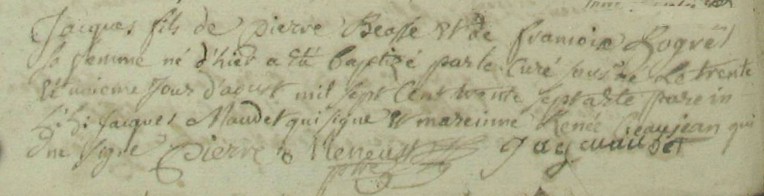 Jacques fils de pierre Beasse et de francoise Logrel
sa femme né d'hier a eté baptizé par le Curé sous né Le trente
et unieme jour d'aoust mil sept Cent trente sept a eté parein
Jacques Maudet qui signe et mareinne Renée Beaujean qui
ne signe pierre Jacq maudet